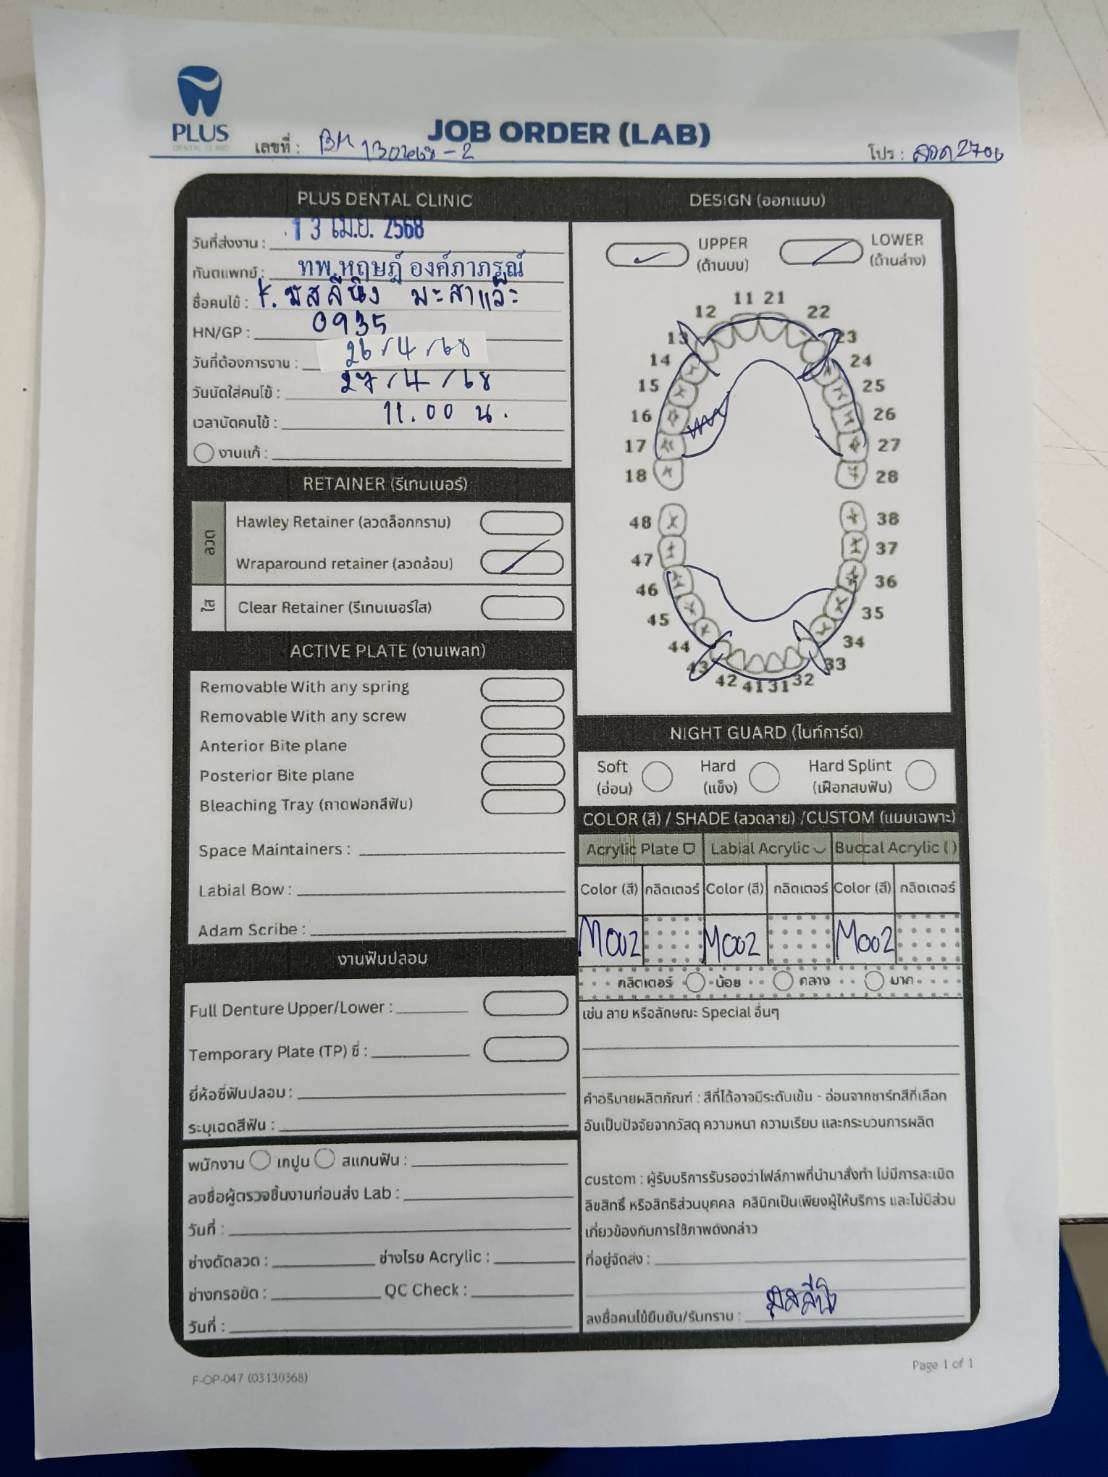 PLUS
DENTAL CLINIC
JOB ORDER (LAB)
เลขที่ : BM 130468-2
โปร : ลวด 2700
PLUS DENTAL CLINIC
วันที่ส่งงาน : 13 เม.ย. 2568
ทันตแพทย์ : ทพ.หฤษฎ์ องค์ภาภรณ์
ชื่อคนไข้ : K. มัสลีนิง มะสาแว๊ะ
HN/GP : 0935
วันที่ต้องการงาน : 26/4/68
วันนัดใส่คนไข้ : 27/4/68
เวลานัดคนไข้ : 11.00 น.
งานแก้ :
RETAINER (รีเทนเนอร์)
ลวด
Hawley Retainer (ลวดล็อกกราม)
Wraparound retainer (ลวดล้อม)
ใส
Clear Retainer (รีเทนเนอร์ใส)
ACTIVE PLATE (งานเพลท)
Removable With any spring
Removable With any screw
Anterior Bite plane
Posterior Bite plane
Bleaching Tray (ถาดฟอกสีฟัน)
Space Maintainers :
Labial Bow :
Adam Scribe :
งานฟันปลอม
Full Denture Upper/Lower :
Temporary Plate (TP) ซี่ :
ยี่ห้อซี่ฟันปลอม :
ระบุเฉดสีฟัน :
พนักงาน เทปูน สแกนฟัน :
ลงชื่อผู้ตรวจชิ้นงานก่อนส่ง Lab :
วันที่ :
ช่างดัดลวด : ช่างโรย Acrylic :
ช่างกรอขัด : QC Check :
วันที่ :
DESIGN (ออกแบบ)
UPPER
(ด้านบน)
LOWER
(ด้านล่าง)
11 21
12 22
13 23
14 24
15 25
16 26
17 27
18 28
48 38
47 37
46 36
45 35
44 34
43 33
42 41 31 32
NIGHT GUARD (ไนท์การ์ด)
Soft
(อ่อน)
Hard
(แข็ง)
Hard Splint
(เฝือกสบฟัน)
COLOR (สี) / SHADE (ลวดลาย) /CUSTOM (แบบเฉพาะ)
Acrylic Plate Labial Acrylic Buccal Acrylic ( )
Color (สี) กลิตเตอร์ Color (สี) กลิตเตอร์ Color (สี) กลิตเตอร์
M002 M002 M002
กลิตเตอร์ น้อย กลาง มาก
เช่น ลาย หรือลักษณะ Special อื่นๆ
คำอธิบายผลิตภัณฑ์ : สีที่ได้อาจมีระดับเข้ม - อ่อนจากชาร์ทสีที่เลือก
อันเป็นปัจจัยจากวัสดุ ความหนา ความเรียบ และกระบวนการผลิต
custom : ผู้รับบริการรับรองว่าไฟล์ภาพที่นำมาสั่งทำ ไม่มีการละเมิด
ลิขสิทธิ์ หรือสิทธิส่วนบุคคล คลินิกเป็นเพียงผู้ให้บริการ และไม่มีส่วน
เกี่ยวข้องกับการใช้ภาพดังกล่าว
ที่อยู่จัดส่ง :
ลงชื่อคนไข้ยืนยัน/รับทราบ : มัสลีนิง
F-OP-047 (03130368)
Page 1 of 1